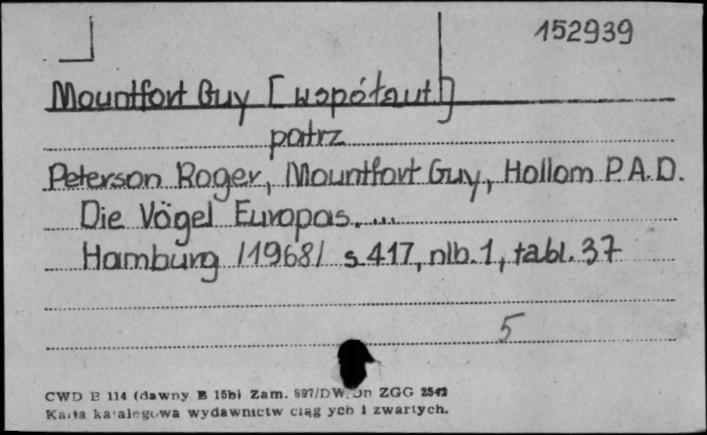 152939
Mountfort Guy [współaut.]
patrz
Peterson Roger, Mountfort Guy, Hollom P.A.D.
Die Vögel Europas. ...
Hamburg /1968/ s.417, nlb.1, tabl.37
5
CWD B 114 (dawny B 15b) Zam. 897/DW. Dn ZGG 2542
Karta katalogowa wydawnictw ciągłych i zwartych.